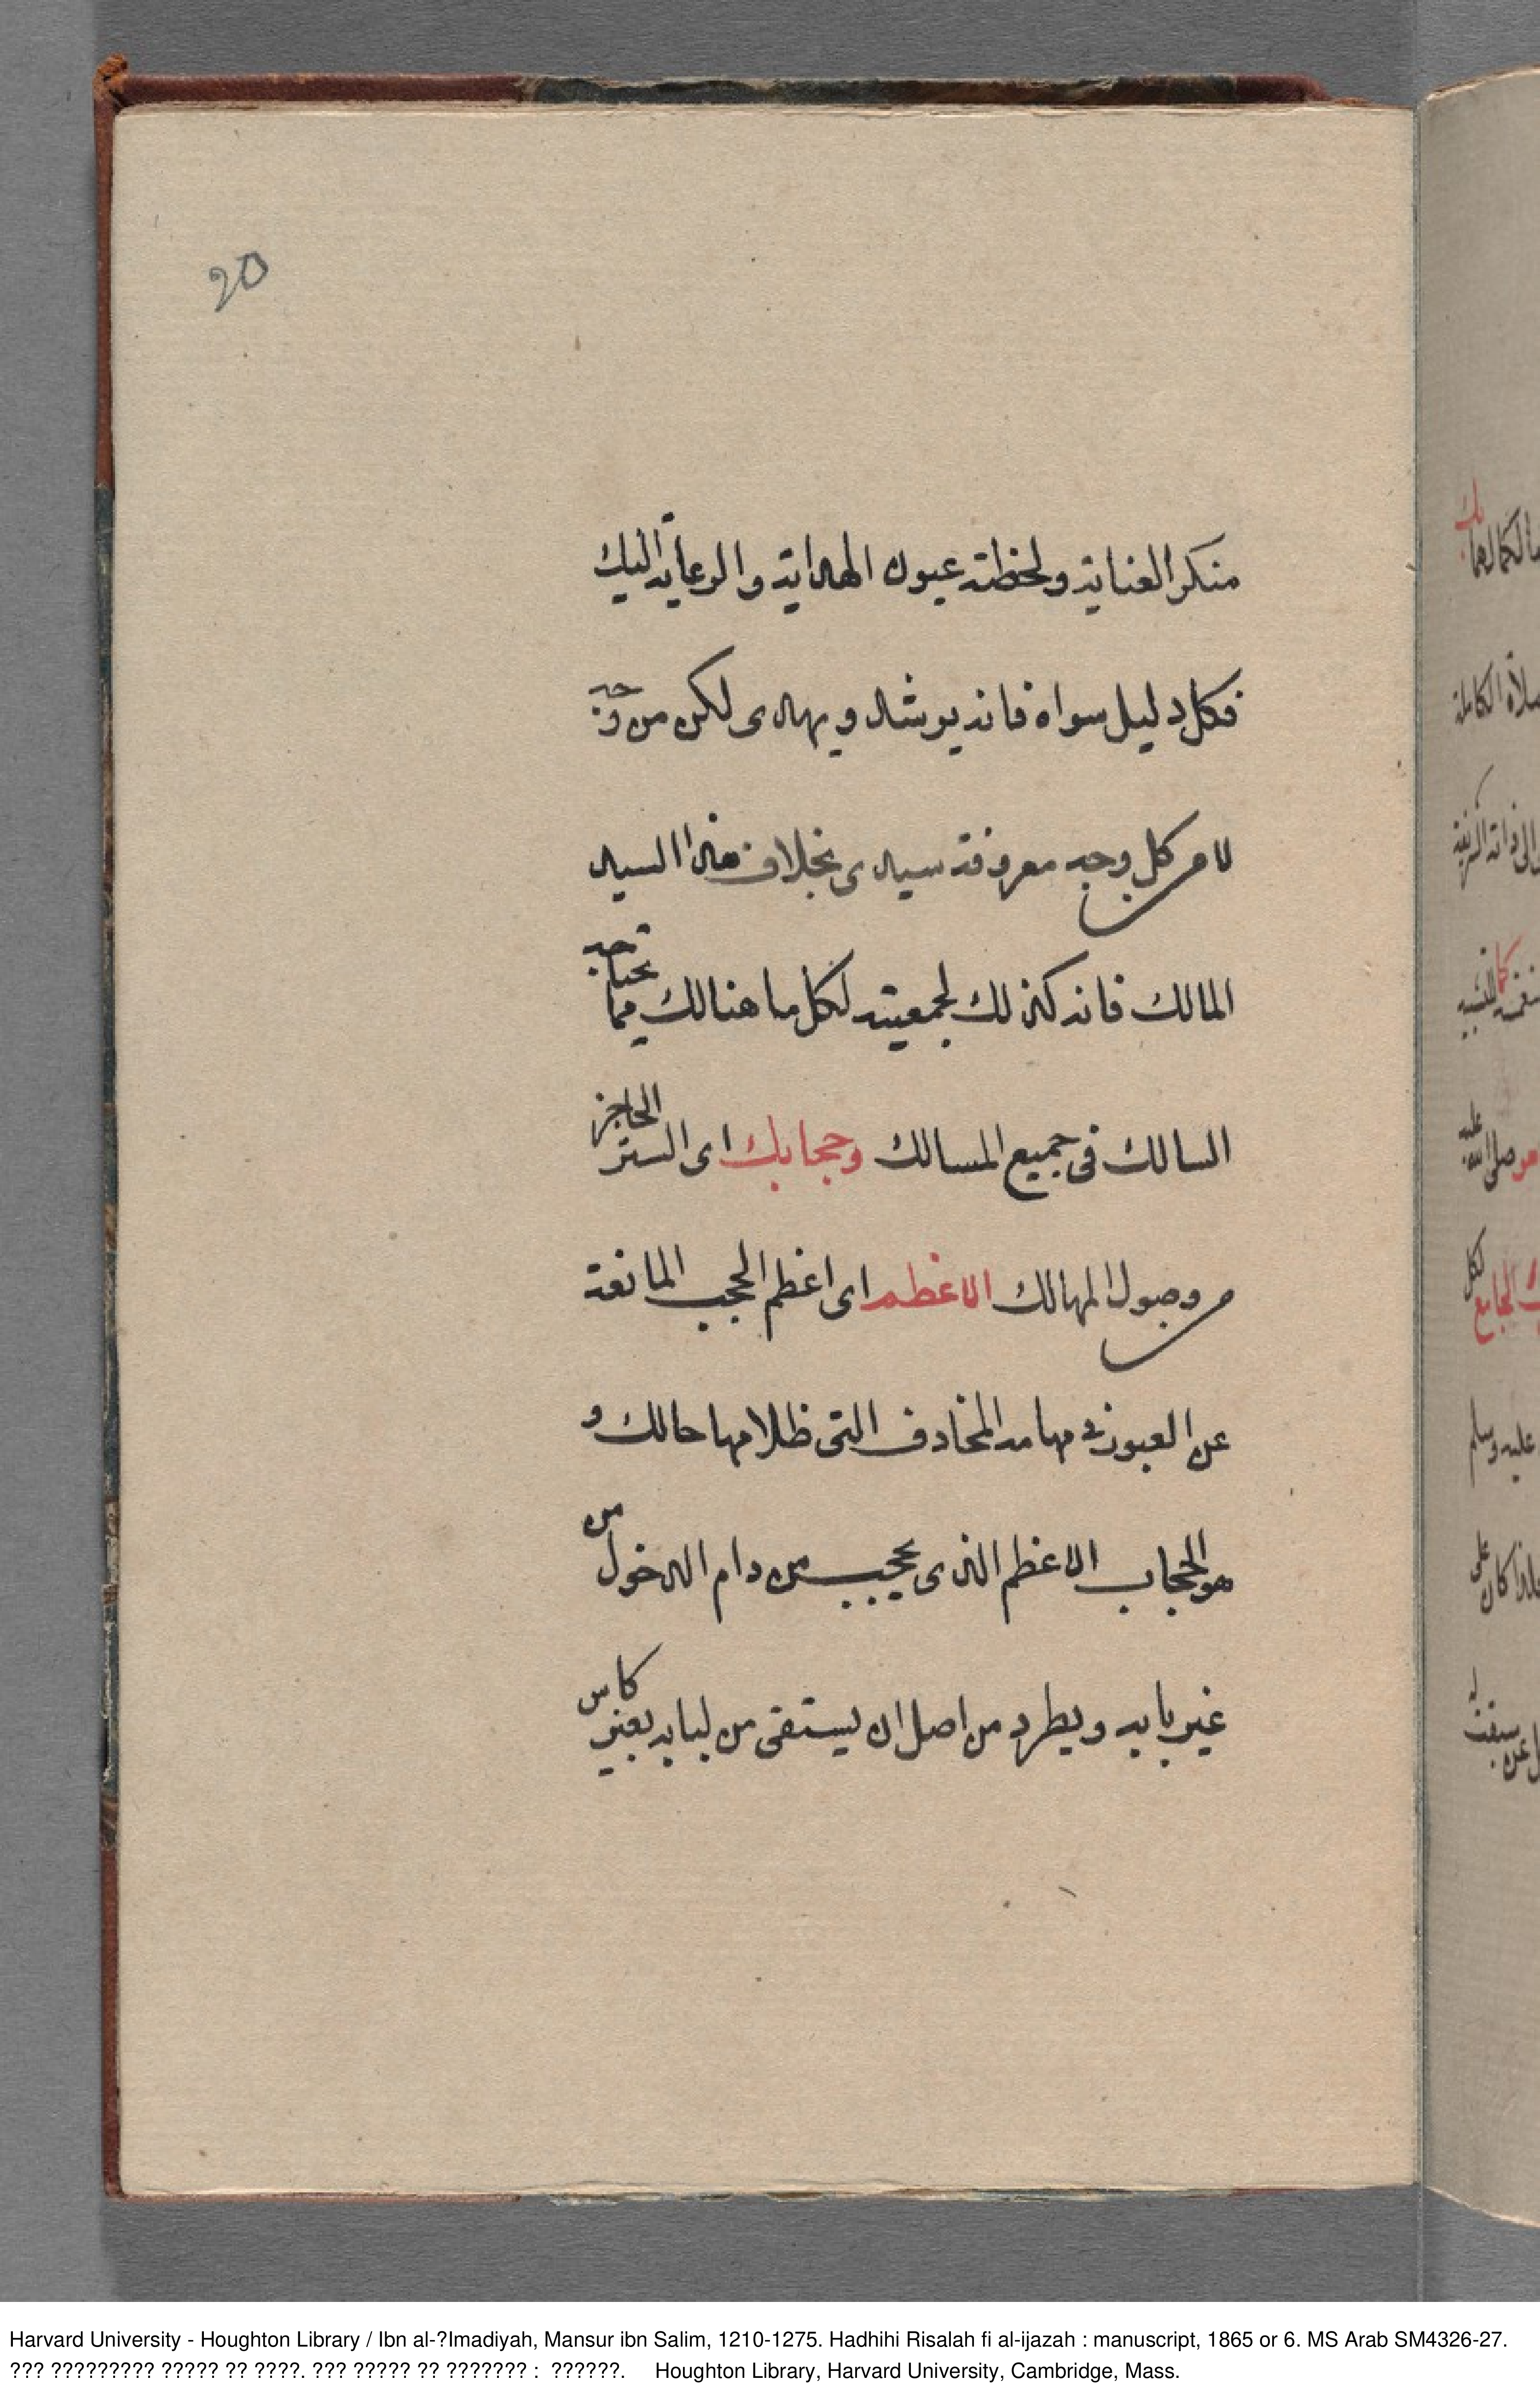 20
منكر العناية ولحظته عيون الهداية والرعاية اليك
فكل دليل سواه فانه يرشد ويهدى لكن من وجه
لا من كل وجه معروفة سيدى بخلاف هذا السيد
المالك فانه كذلك لجمعيته لكل ما هنالك مما يحتاجه
السالك فى جميع المسالك وحجابك اى الستر الحاجز
من وصول المهالك الاعظم اى اعظم الحجب المانعة
عن العبور فى مهامه المخاوف التى ظلامها حالك و
هو الحجاب الاعظم الذى يحجب من دام الدخول من
غير بابه ويطرد من اصل ان يستقى من لبابه بغير كاس
Harvard University - Houghton Library / Ibn al-?Imadiyah, Mansur ibn Salim, 1210-1275. Hadhihi Risalah fi al-ijazah : manuscript, 1865 or 6. MS Arab SM4326-27.
??? ????????? ????? ?? ????. ??? ????? ?? ??????? : ??????. Houghton Library, Harvard University, Cambridge, Mass.